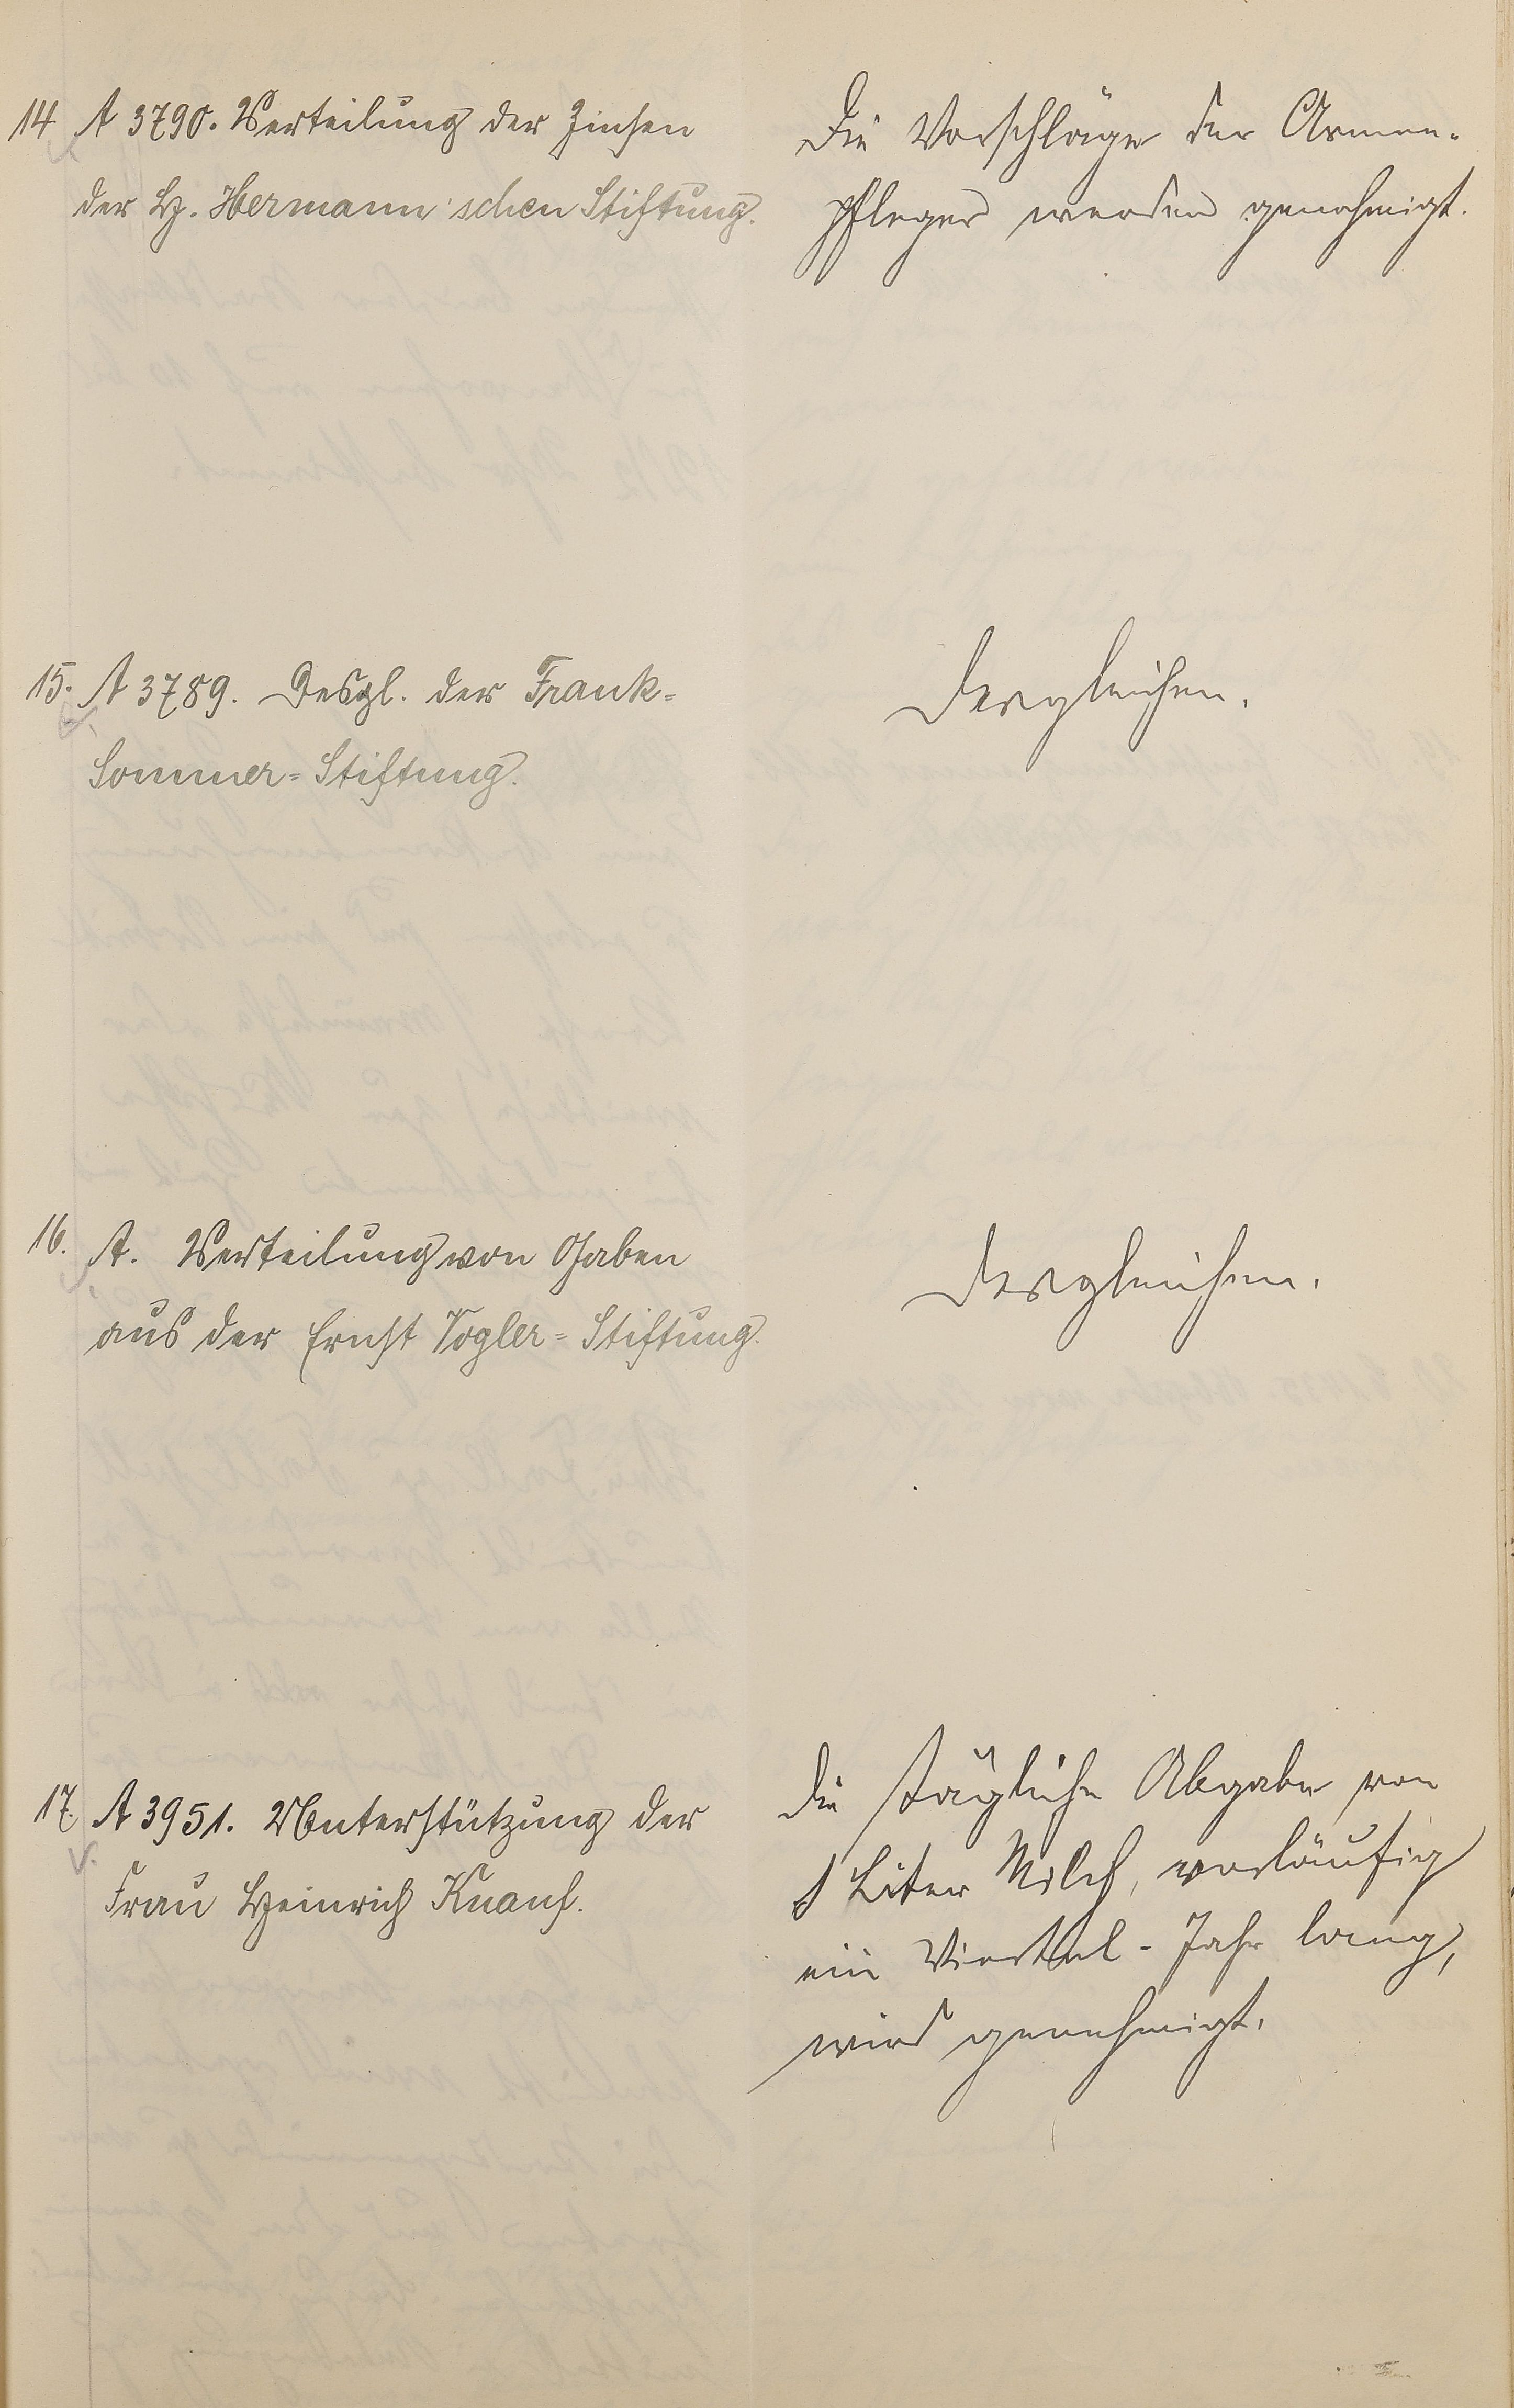 14 A 3790. Verteilung der Zinsen
der H. Hermann'schen Stiftung.
Die Vorschläge der Armen-
pfleger werden genehmigt.
15. A 3789. Desgl. der Frank-
Sommer-Stiftung.
Desgleichen.
16. A. Verteilung von Gaben
aus der Ernst Vogler-Stiftung.
Desgleichen.
17. A 3951. Unterstützung der
Frau Heinrich Knauf.
Die tägliche Abgabe von
1 Liter Milch, vorläufig
ein Viertel-Jahr lang,
wird genehmigt.